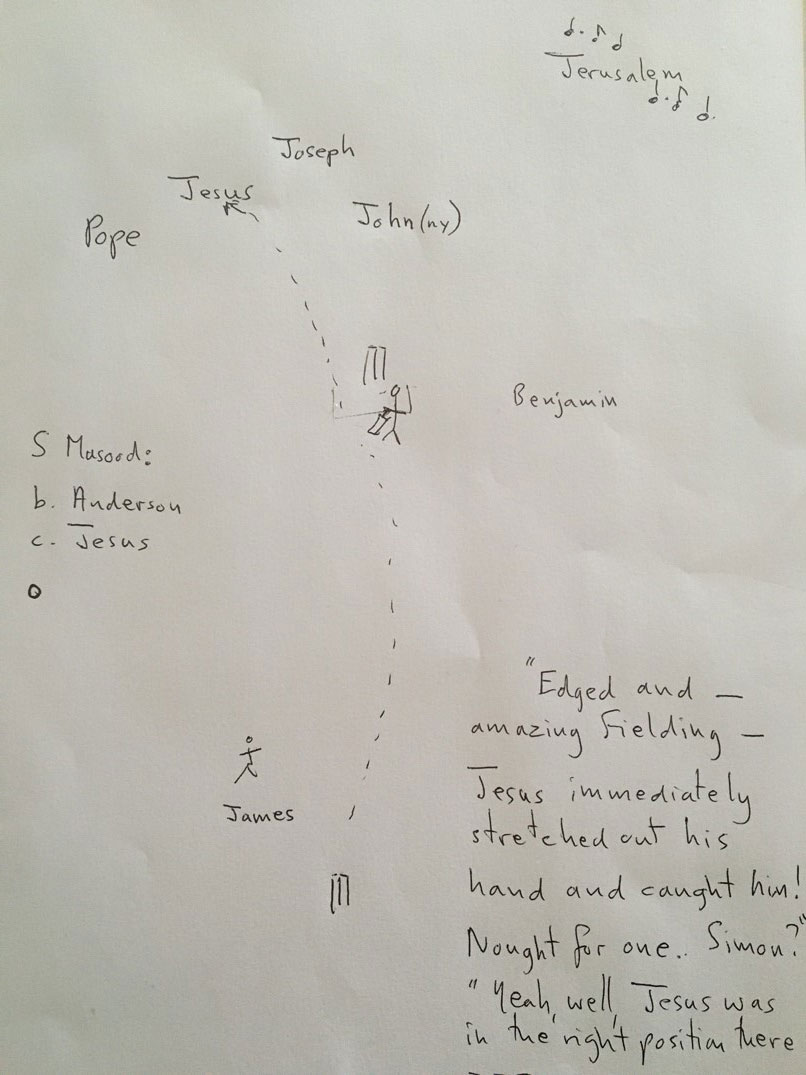 Jerusalem
Joseph
Jesus
John(ny)
Pope
Benjamin
S Masood:
b. Anderson
c. Jesus
0
James
"Edged and —
amazing fielding —
Jesus immediately
stretched out his
hand and caught him!
Nought for one.. Simon?"
"Yeah, well, Jesus was
in the right position there